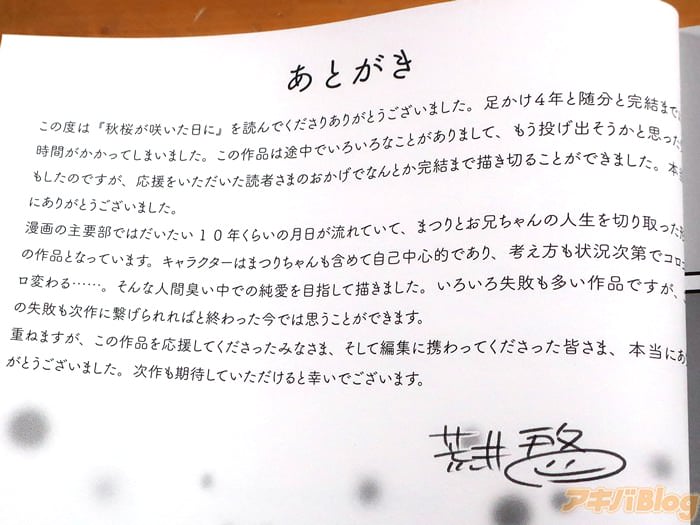 あとがき
この度は『秋桜が咲いた日に』を読んでくださりありがとうございました。足かけ４年と随分と完結まで
時間がかかってしまいました。この作品は途中でいろいろなことがありまして、もう投げ出そうかと思った
もしたのですが、応援をいただいた読者さまのおかげでなんとか完結まで描き切ることができました。本当
にありがとうございました。
漫画の主要部ではだいたい１０年くらいの月日が流れていて、まつりとお兄ちゃんの人生を切り取った
の作品となっています。キャラクターはまつりちゃんも含めて自己中心的であり、考え方も状況次第でコロ
ロ変わる……。そんな人間臭い中での純愛を目指して描きました。いろいろ失敗も多い作品ですが、
の失敗も次作に繋げられればと終わった今では思うことができます。
重ねますが、この作品を応援してくださったみなさま、そして編集に携わってくださった皆さま、本当にあ
がとうございました。次作も期待していただけると幸いでございます。
荒井啓
アキバBlog